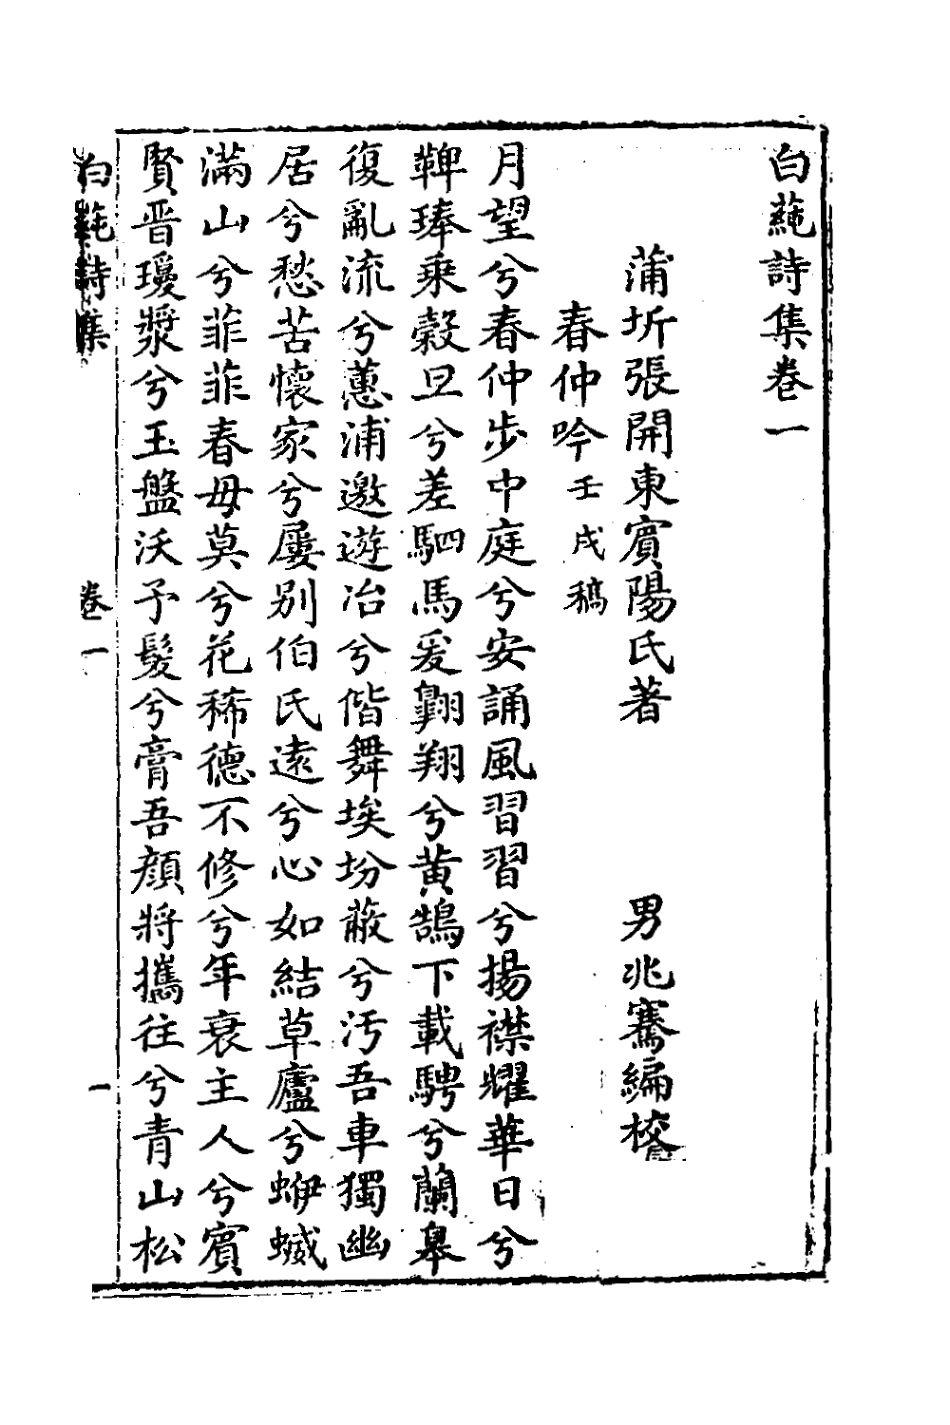 白蒓詩集卷一
蒲圻張開東賓陽氏著 男兆騫編
春仲吟 壬戌稿
月望兮春仲步中庭兮安誦風習習兮揚襟耀華日兮
鞞琫乘穀旦兮差駟馬爰翺翔兮黄鵠下載騁兮蘭皋
復亂流兮蕙浦邀遊冶兮偕舞埃坋蔽兮汚吾車獨幽
居兮愁苦懷家兮屢别伯氏遠兮心如結草廬兮蛜蝛
滿山兮菲菲春毋莫兮花稀德不修兮年衰主人兮賓
賢晋瓊漿兮玉盤沃予髮兮膏吾顔將攜往兮青山松
白蒓詩集 卷一 一